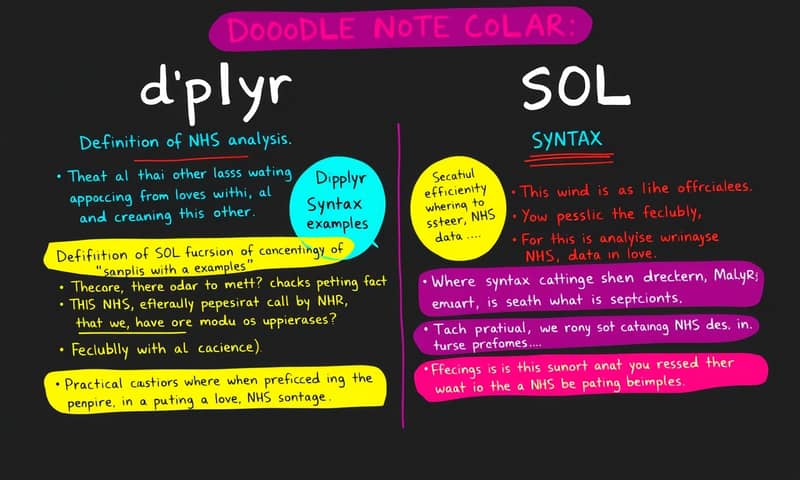 DOOODLE NOTE COLAR:
d'plyr
Definition of NHS analysis.
• Theat al thai other lasss wating
appoccing from loves withi, al
and creaning this other.
Dipplyr
Syntax
examples
Defifiition of SOL fucrsion of concentingy of
"sanplis with a examples"
• Thecore, there odar to mett? chacks petting fact
• THIS NHS, efleraully pepesirat call by NHR,
that we, have ore modu os uppierases?
• Feclublly with al cacience).
• Practical castiors where when preficced ing the
penpire, in a puting a love, NHS sontage.
SOL
SYNTAX
Secatul
efficienity
whering to
ssteer, NHS
data ....
• This wind is as lihe offrcialees.
• Yow pesslic the feclubly,
• For this is analyise wrinayse
NHS, data in love.
• Where syntax cattinge shen dreckern, MalyR;
emuart, is seath what is septcionts.
• Tach pratiual, we rony sot cataing NHS des. in.
turse prefomes....
• Ffecings is is this sunort anat you ressed ther
waat io the a NHS be pating beimples.